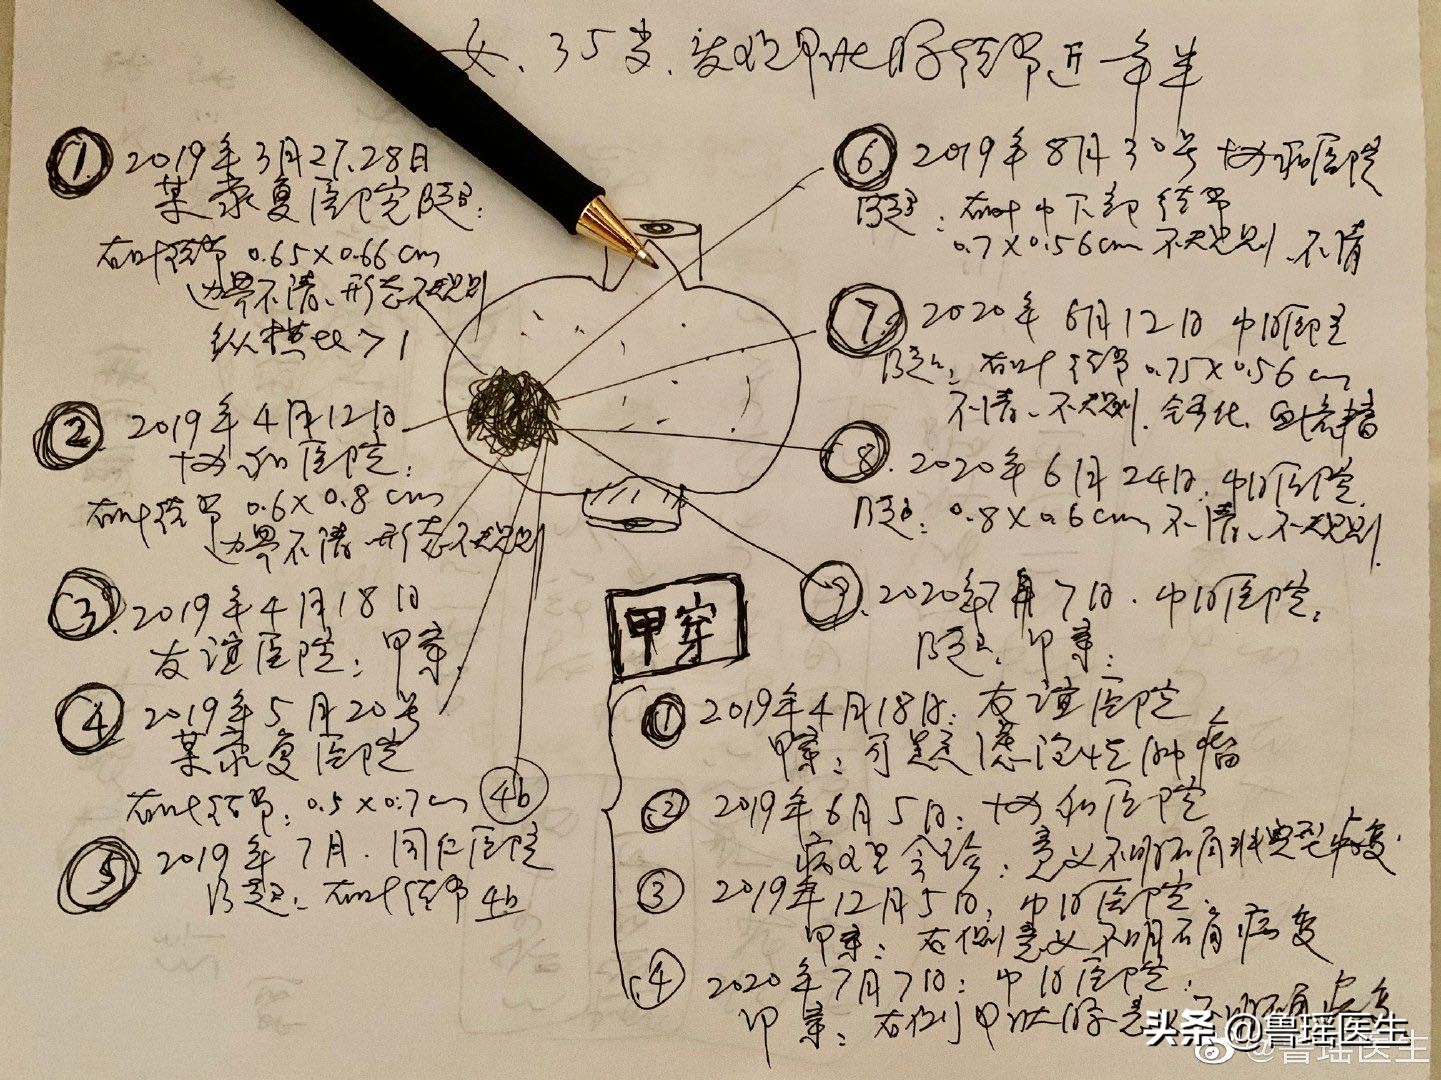 女、35岁、发现甲状腺结节近一年半
① 2019年3月27.28日
某康复医院B超:
右叶结节 0.65×0.66cm
边界不清、形态不规则
纵横比>1
② 2019年4月12日
协和医院:
右叶结节 0.6×0.8cm
边界不清、形态不规则
③. 2019年4月18日
友谊医院: 甲穿.
④ 2019年5月20号
某康复医院
右叶结节: 0.5×0.7cm 4b
⑤ 2019年7月. 同仁医院
B超: 右叶结节 4b
⑥ 2019年8月30号 协和医院
B超: 右叶中下部结节
0.7×0.56cm 不规则、不清
⑦. 2020年6月12日 中日医院
B超: 右叶结节 0.75×0.56cm
不清、不规则.
⑧. 2020年6月24日. 中日医院
B超: 0.8×0.6cm 不清、不规则.
⑨. 2020年7月7日. 中日医院:
B超、甲穿:
甲穿
① 2019年4月18日: 友谊医院
甲穿: 可疑滤泡性肿瘤
② 2019年6月5日: 协和医院
病理会诊: 意义不明确非典型病变.
③ 2019年12月5日: 中日医院.
甲穿: 右侧意义不明确病变
④ 2020年7月7日: 中日医院:
甲穿: 右侧甲状腺意义不明确病变
头条 @鲁瑶医生
@鲁瑶医生